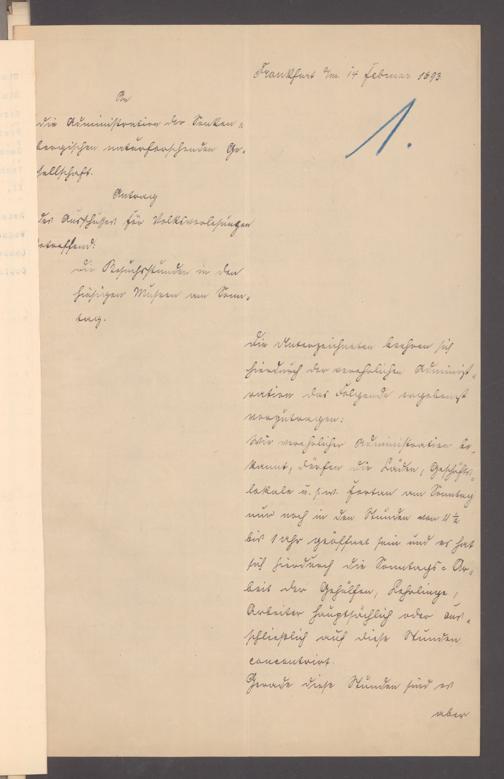 Frankfurt a/m 14 Februar 1893
1.
An
die Administration der Senken-
bergischen naturforschenden Ge-
sellschaft.
Antrag
des Ausschusses für Volksvorlesungen
betreffend:
die Besuchsstunden in den
hiesigen Museen am Sonn-
tag.
Die Unterzeichneten beehren sich
hierdurch der verehrlichen Administ-
ration das Folgende ergebenst
vorzutragen:
Wie verehrlicher Administration be-
kannt, dürfen die Läden, Geschäfts-
lokale u. s. w. fortan am Sonntag
nur noch in den Stunden von 11 ½
bis 1 Uhr geöffnet sein und es hat
sich hierdurch die Sonntags-Ar-
beit der Gehülfen, Lehrlinge,
Arbeiter hauptsächlich oder aus-
schließlich auf diese Stunden
concentrirt.
Gerade diese Stunden sind es
aber